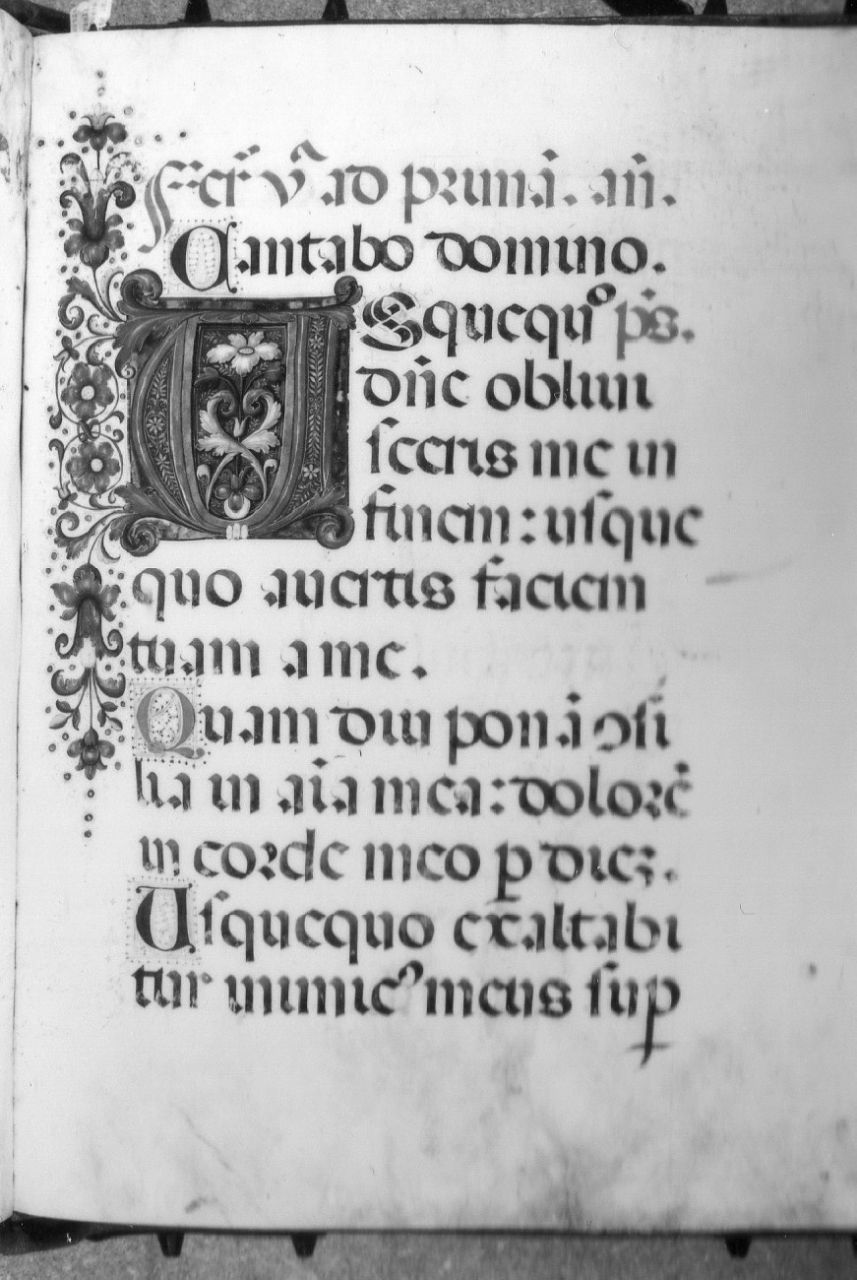 Fer̃ vͣ ad primā. an̄.
Cantabo domino.
USquequo p̄s.
dn̄e obliui
ſceris me in
finem: uſque
quo auertis faciem
tuam a me.
Quam diu ponā ↄſi
lia in aīa mea: dolorē
in corde meo ꝑ dieꝫ.
Uſquequo exaltabi
tur inimicꝰ meus ſuꝑ